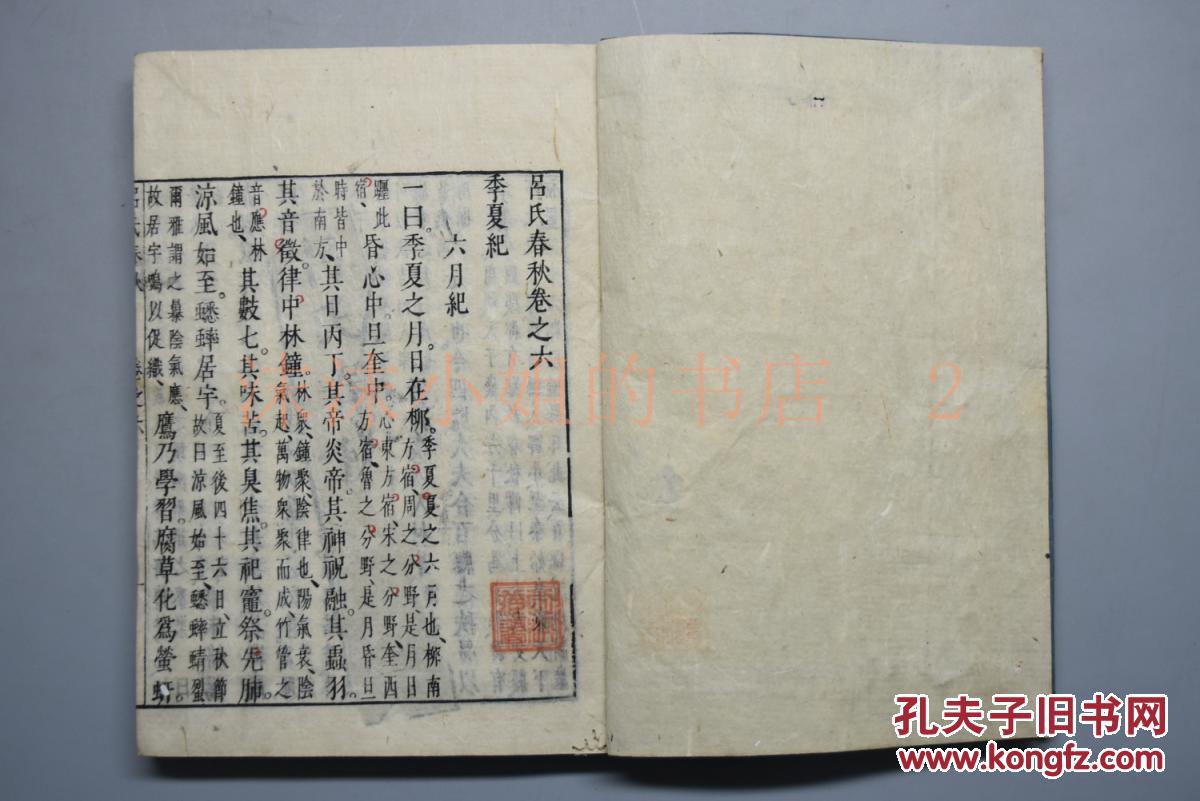 呂氏春秋卷之六
季夏紀
六月紀
一曰季夏之月日在桺。季夏夏之六月也、桺南方宿、周之分野、是月日
躔此宿。昏心中。旦奎中。心東方宿、宋之分野、奎西方宿、魯之分野、是月昏旦
時皆中於南方、其日丙丁。其帝炎帝。其神祝融。其蟲羽。
其音徵。律中林鐘。林衆、鐘聚、陰律也、陽氣衰、陰氣起、萬物衆聚而成、竹管之
音應林鐘也、其數七。其味苦。其臭焦。其祀竈。祭先肺。
涼風始至。蟋蟀居宇。夏至後四十六日、立秋節故曰涼風始至、蟋蟀蜻蛚
爾雅謂之 陰氣應、故居宇鳴以促織、鷹乃學習。腐草化爲螢蚈。
呂氏春秋 卷之六
小姐的书店 2
孔夫子旧书网
www.kongfz.com